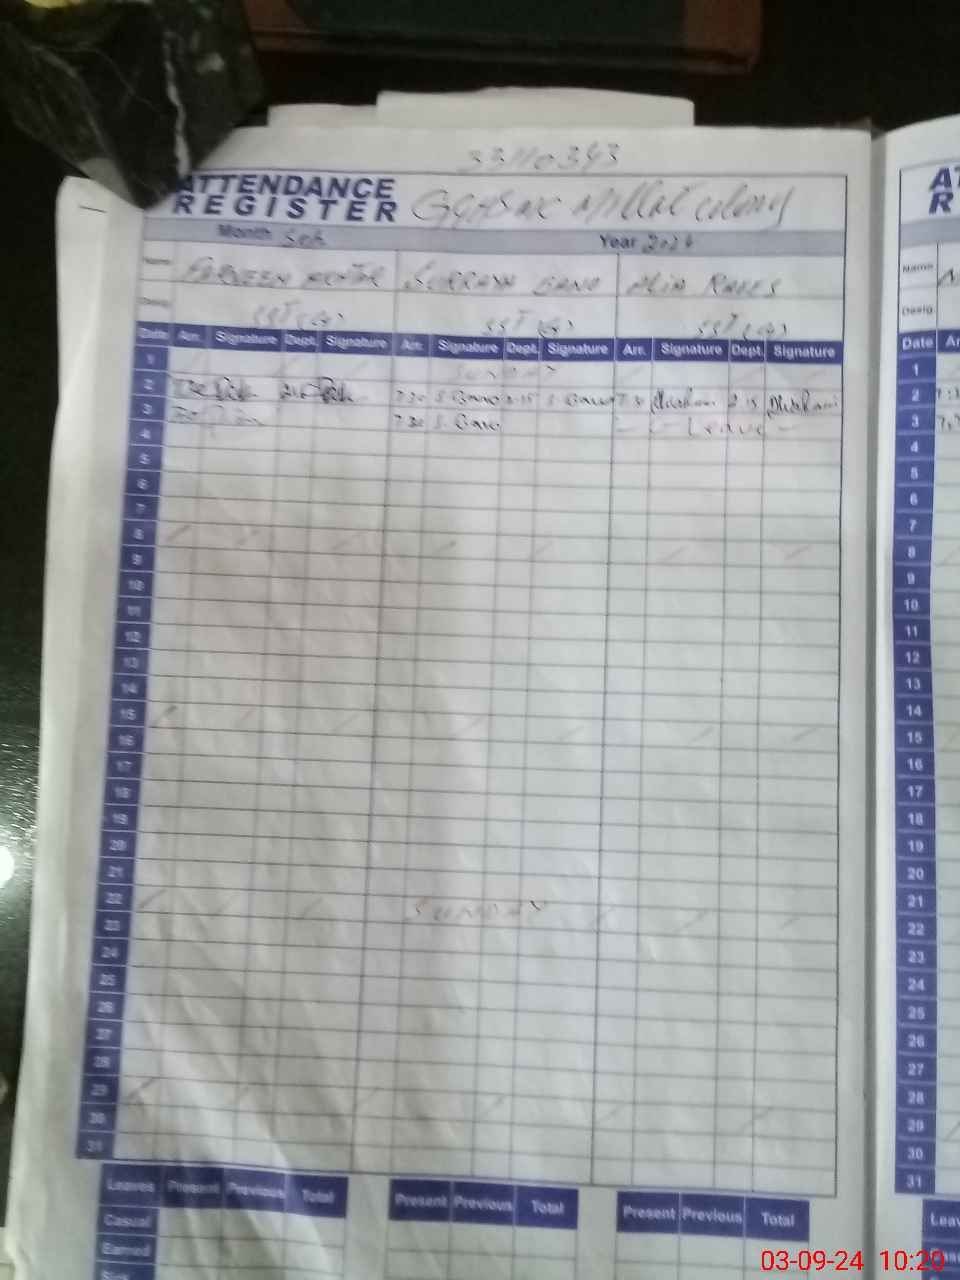 33110343
ATTENDANCE
REGISTER
Millat colony
AT
R
Month Year 2024
Name PARVEEN AKHTAR SURRAYA BANO Name
Desig SST (G) SST (G) SST (G) Desig
Date Arr. Signature Dept. Signature Arr. Signature Dept. Signature Arr. Signature Dept. Signature Date Ar
1 SUNDAY 1
2 7:30 S. Bano 2:15 S. Bano 2:15 2
3 7:30 S. Bano Leave 3
4 4
5 5
6 6
7 7
8 8
9 9
10 10
11 11
12 12
13 13
14 14
15 15
16 16
17 17
18 18
19 19
20 20
21 21
22 SUNDAY 22
23 23
24 24
25 25
26 26
27 27
28 28
29 29
30 30
31 31
Leaves Present Previous Total Present Previous Total Present Previous Total Leav
Casual
Earned
03-09-24 10:20